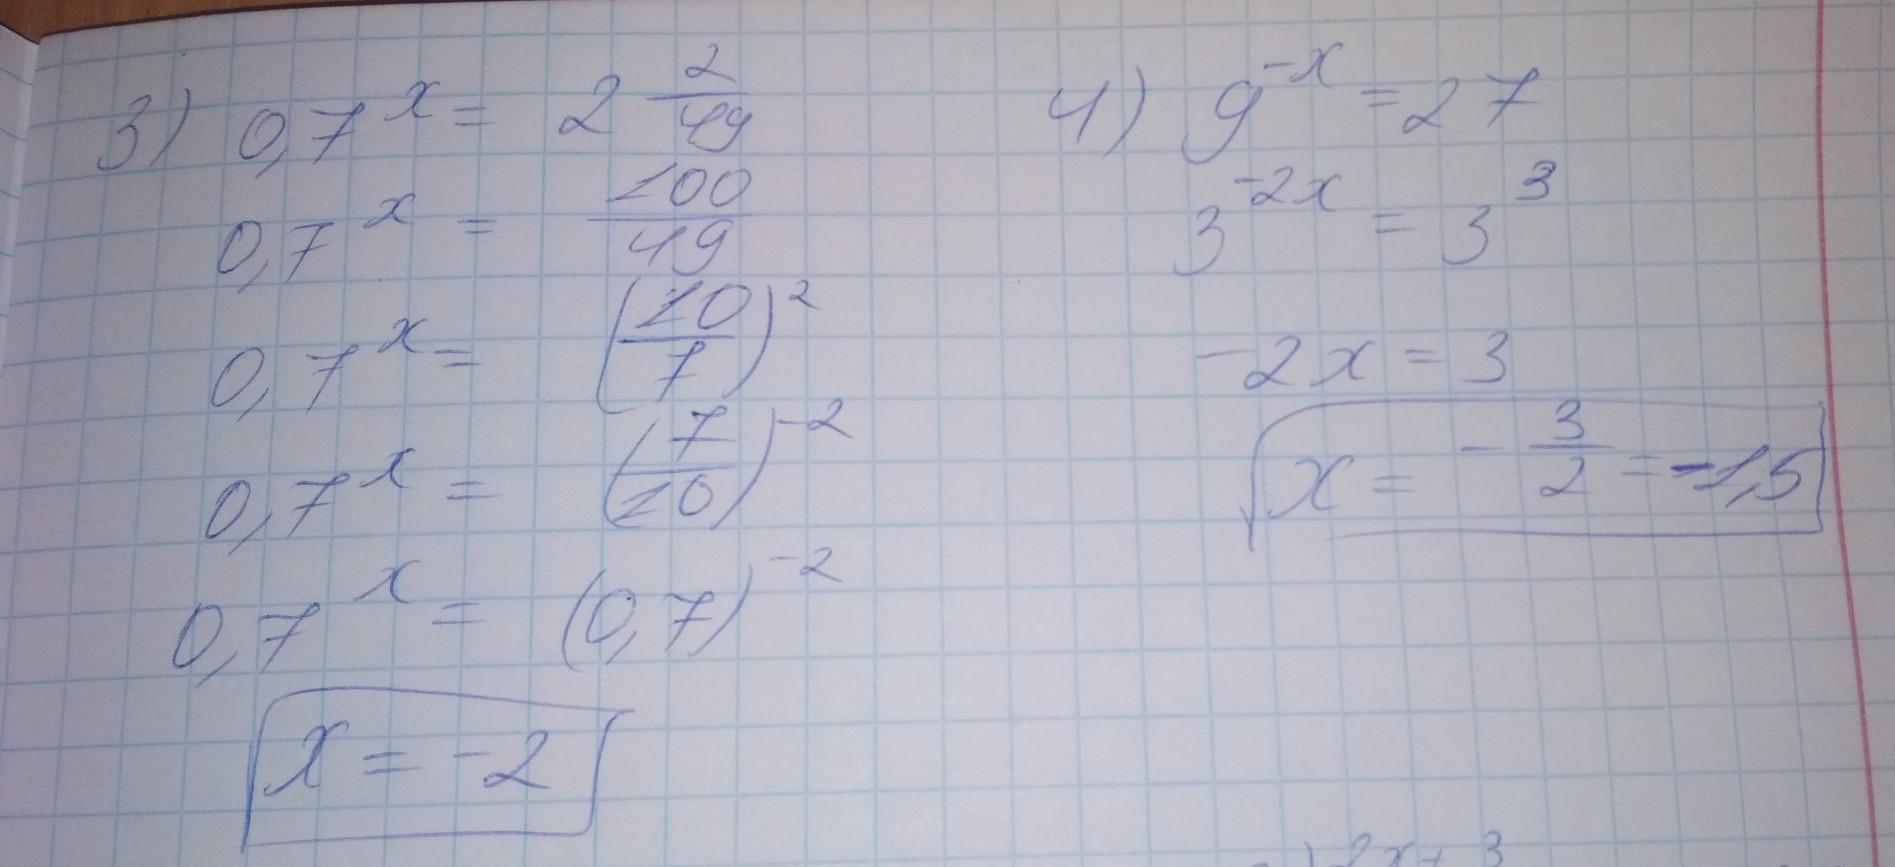 3) 0,7^x = 2 2/49
0,7^x = 100/49
0,7^x = (10/7)^2
0,7^x = (7/10)^-2
0,7^x = (0,7)^-2
x = -2
4) 9^-x = 27
3^-2x = 3^3
-2x = 3
x = - 3/2 = -1,5
2x+3